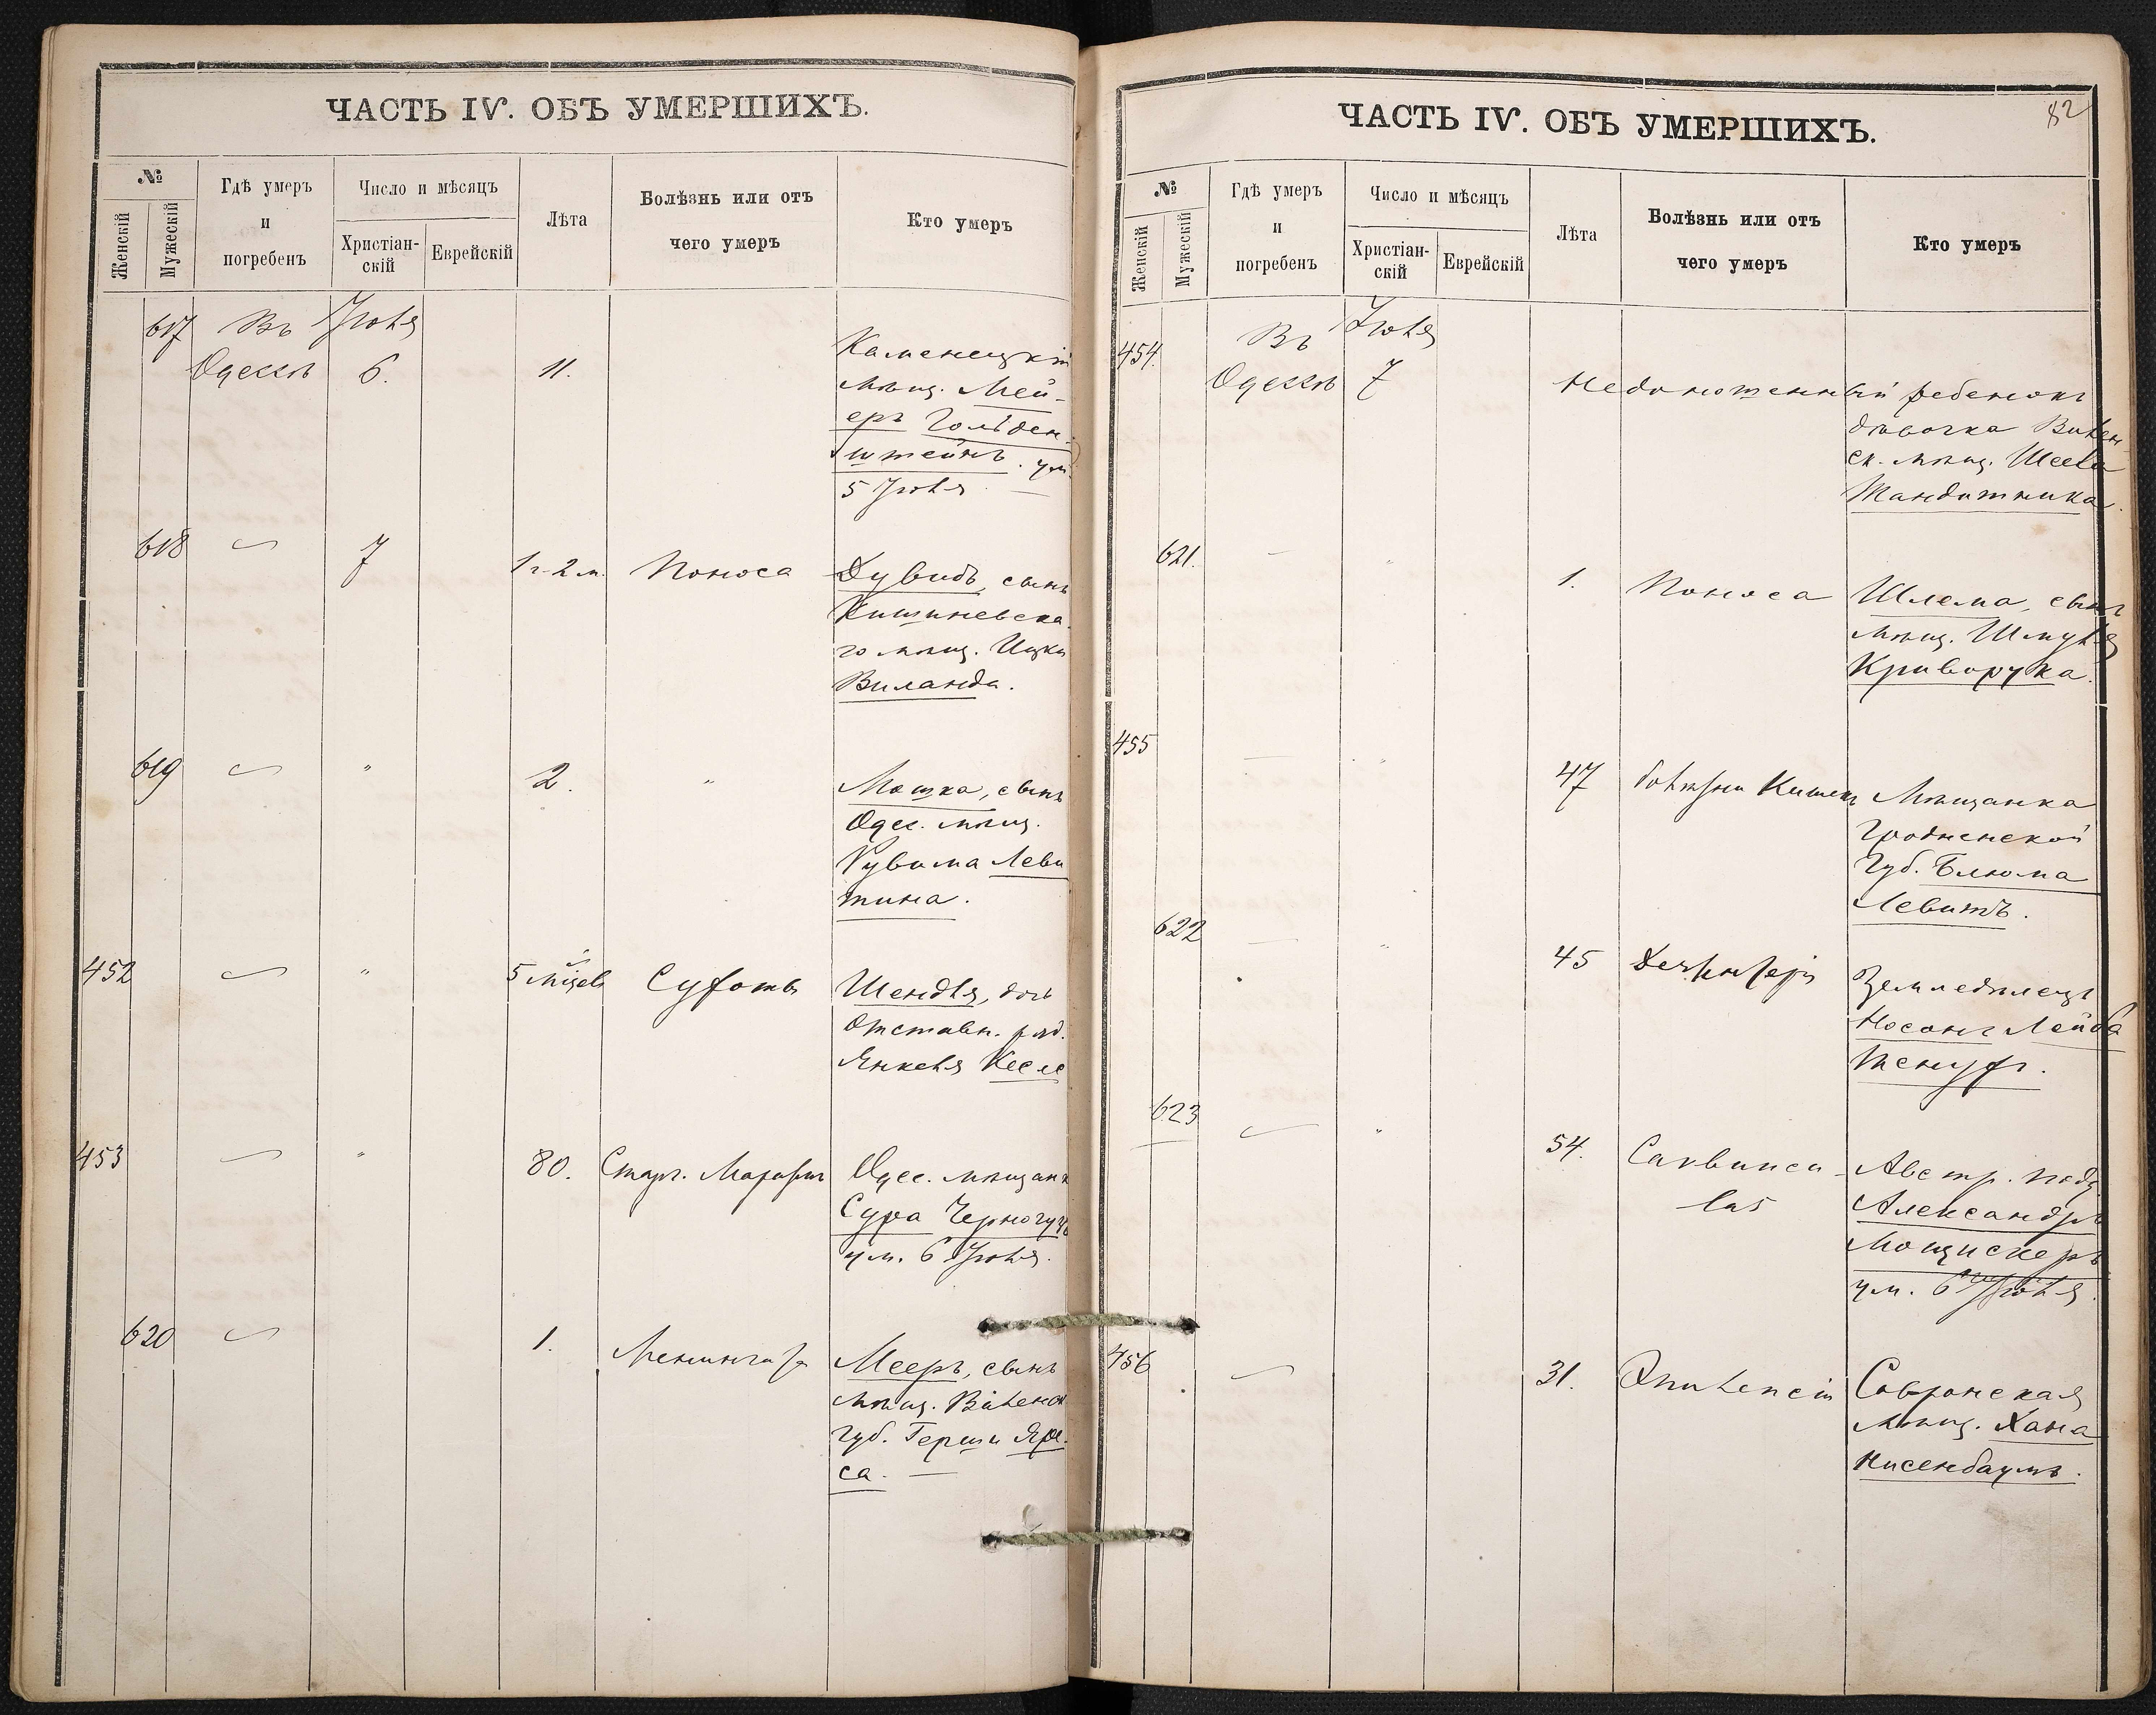 ЧАСТЬ IV. ОБЪ УМЕРШИХЪ.
№
Женскій
Мужескій
Гдѣ умеръ
и
погребенъ
Число и мѣсяцъ
Христіан-
скій
Еврейскій
Лѣта
Болѣзнь или отъ
чего умеръ
Кто умеръ
617 Въ Іюля
Одессѣ 6. 11.
Каменецкій
мѣщ. Мей-
еръ Гольден-
штейнъ. ум.
5 Іюля. —
618 7 1 г. 2 м. Поноса Дувидъ, сынъ
Кишиневска
го мѣщ. Ицки
Виланда.
619 " 2. " Мошка, сынъ
Одес. мѣщ.
Рувима Леви
тина.
452 " 5 Суфоть Шендля, дочь
Отставн. ряд.
Янкеля Кесле
453 " 80. Стар. Маразм Одес. мѣщанк
Сура
ум. 6 Іюля.
620 1. Менингита Мееръ, сынъ
мѣщ. Виленск
губ. Герши
са. —
ЧАСТЬ IV. ОБЪ УМЕРШИХЪ.
82
№
Женскій
Мужескій
Гдѣ умеръ
и
погребенъ
Число и мѣсяцъ
Христіан-
скій
Еврейскій
Лѣта
Болѣзнь или отъ
чего умеръ
Кто умеръ
454. Въ Іюля
Одессѣ 7 Недоношенный ребенокъ
дѣвочка Вилен
ск. мѣщ.
621. " 1. Поноса Шлема, сынъ
мѣщ. Шмуля
Криворука.
455 " 47 Мѣщанка
Гродненской
Губ. Блюма
Левитъ.
622 " 45 Земледѣлецъ
Носонъ Лейба
623 " 54. Австр. подд
Александръ
Мощискеръ
ум. 6 Іюля.
456 31. Эпилепсіи Савранская
мѣщ. Хана
Нисенбаумъ.